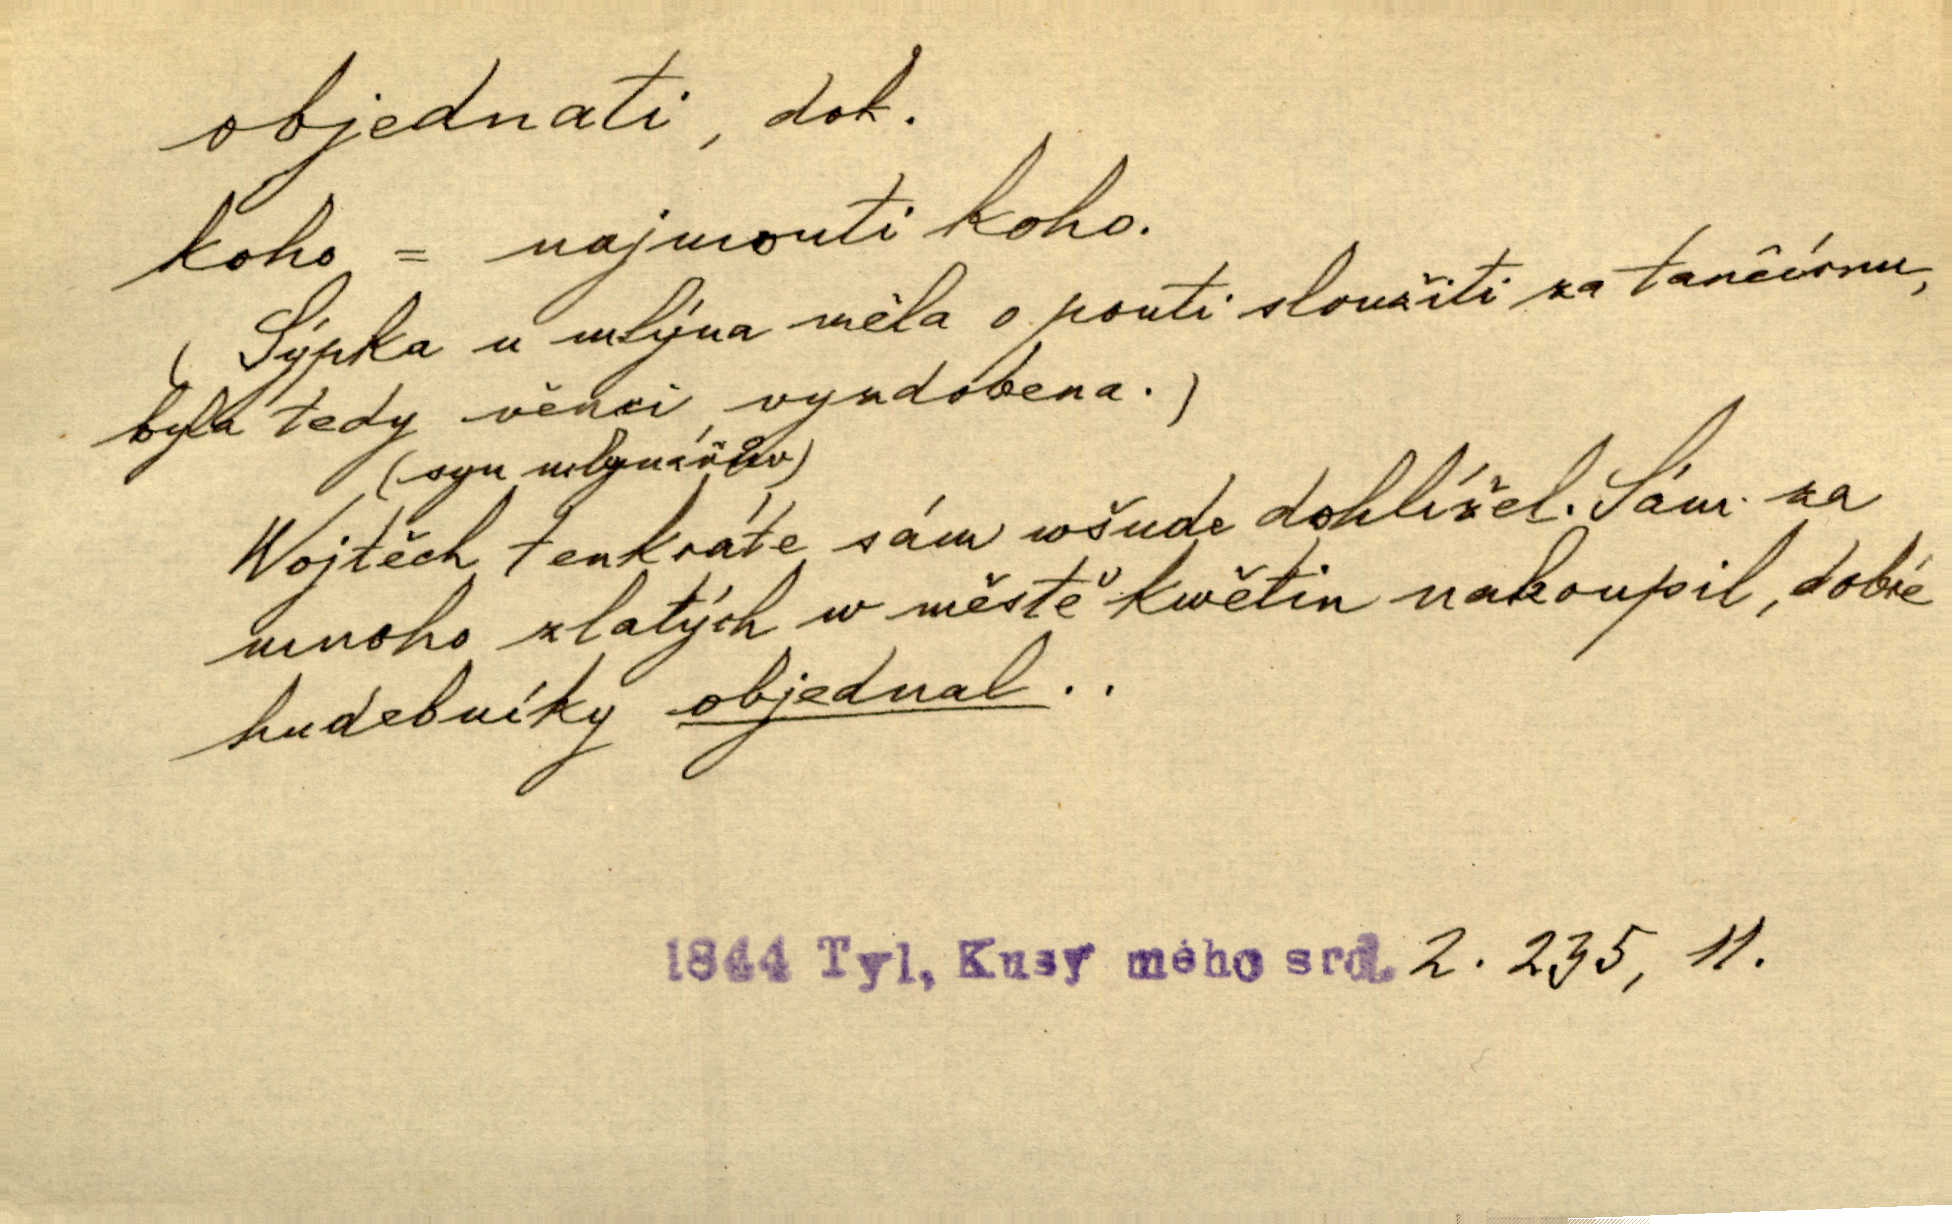 objednati, dok.
koho = najmouti koho.
(Sýpka u mlýna měla o pouti sloužiti za tančírnu,
byla tedy věnci vyzdobena.)
(syn mlynářův)
Wojtěch tenkráte sám wšude dohlížel. Sám za
mnoho zlatých w městě kwětin nakoupil, dobré
hudebníky objednal . .
1844 Tyl, Kusy mého srd. 2. 235, 11.